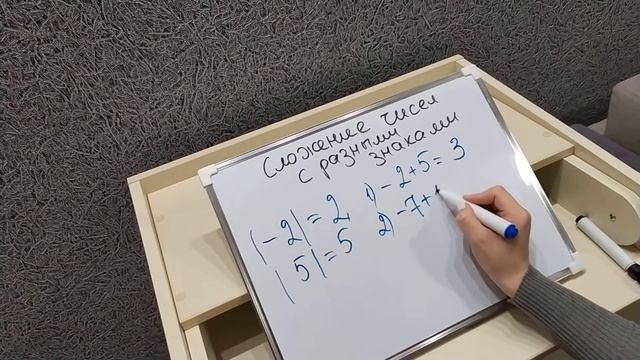 Сложение чисел
с разными
знаками
|-2| = 2
|5| = 5
1) -2+5=3
2) -7+